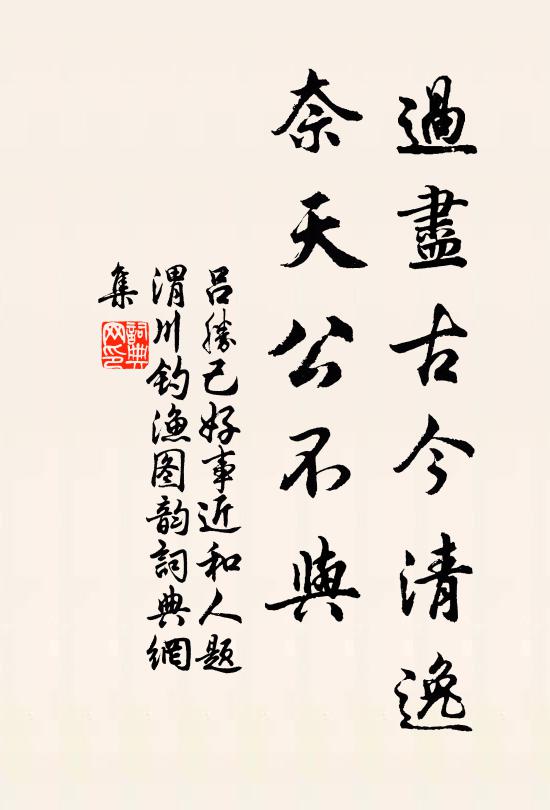 過盡古今清逸
奈天公不與
吕勝己好事近和人題
渭川钓渔图韵詞典網
集
詞典
网印